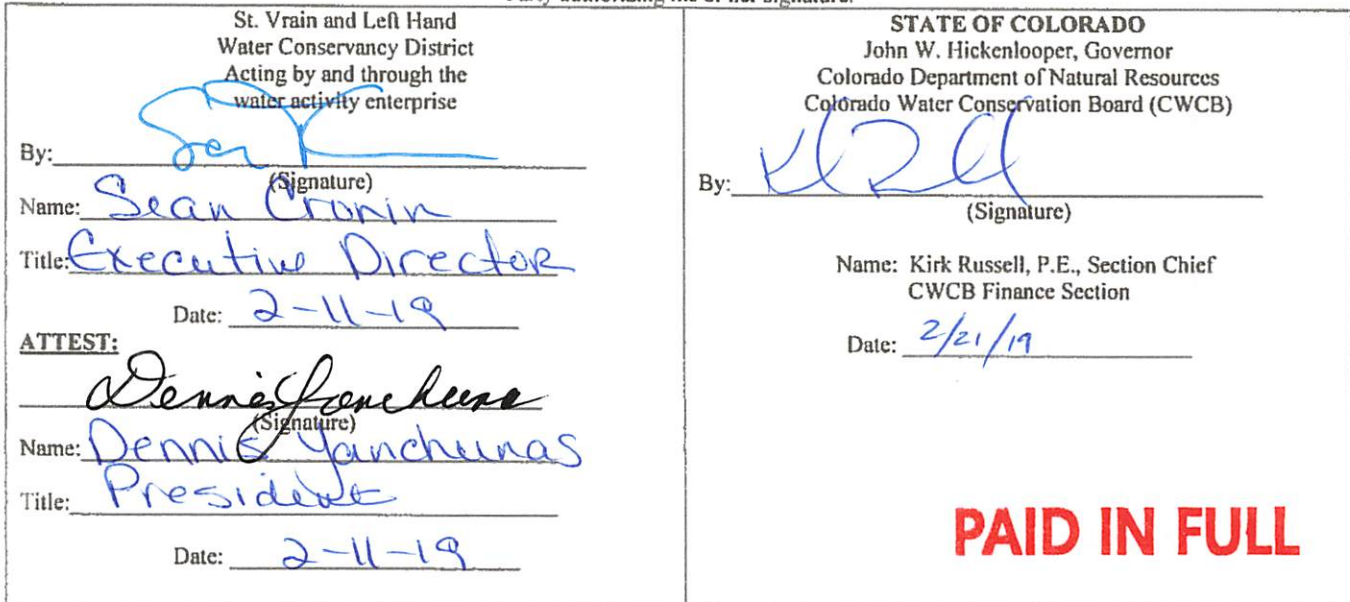 Party authorizing his or her signature.
St. Vrain and Left Hand
Water Conservancy District
Acting by and through the
water activity enterprise
By:
(Signature)
Name: Sean Cronin
Title: Executive Director
Date: 2-11-19
ATTEST:
Dennis Yanchunas
(Signature)
Name: Dennis Yanchunas
Title: President
Date: 2-11-19
STATE OF COLORADO
John W. Hickenlooper, Governor
Colorado Department of Natural Resources
Colorado Water Conservation Board (CWCB)
By:
(Signature)
Name: Kirk Russell, P.E., Section Chief
CWCB Finance Section
Date: 2/21/19
PAID IN FULL